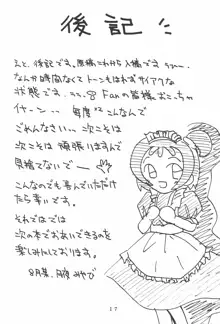 後記
えと、後記です。原稿これから入稿です
なんか時間なくてトーンもはれずサイアクな
状態です。 Fanの皆様おこっちゃ
イヤーン 毎度こんなんで
ごめんなさい… 次こそは
次こそは頑張りますんで
見捨てないで
こんなのでも喜んでいただけ
たら幸いです。
それではでは
次の本でお会いできるのを
楽しみにしております。
8月某 みやび
17